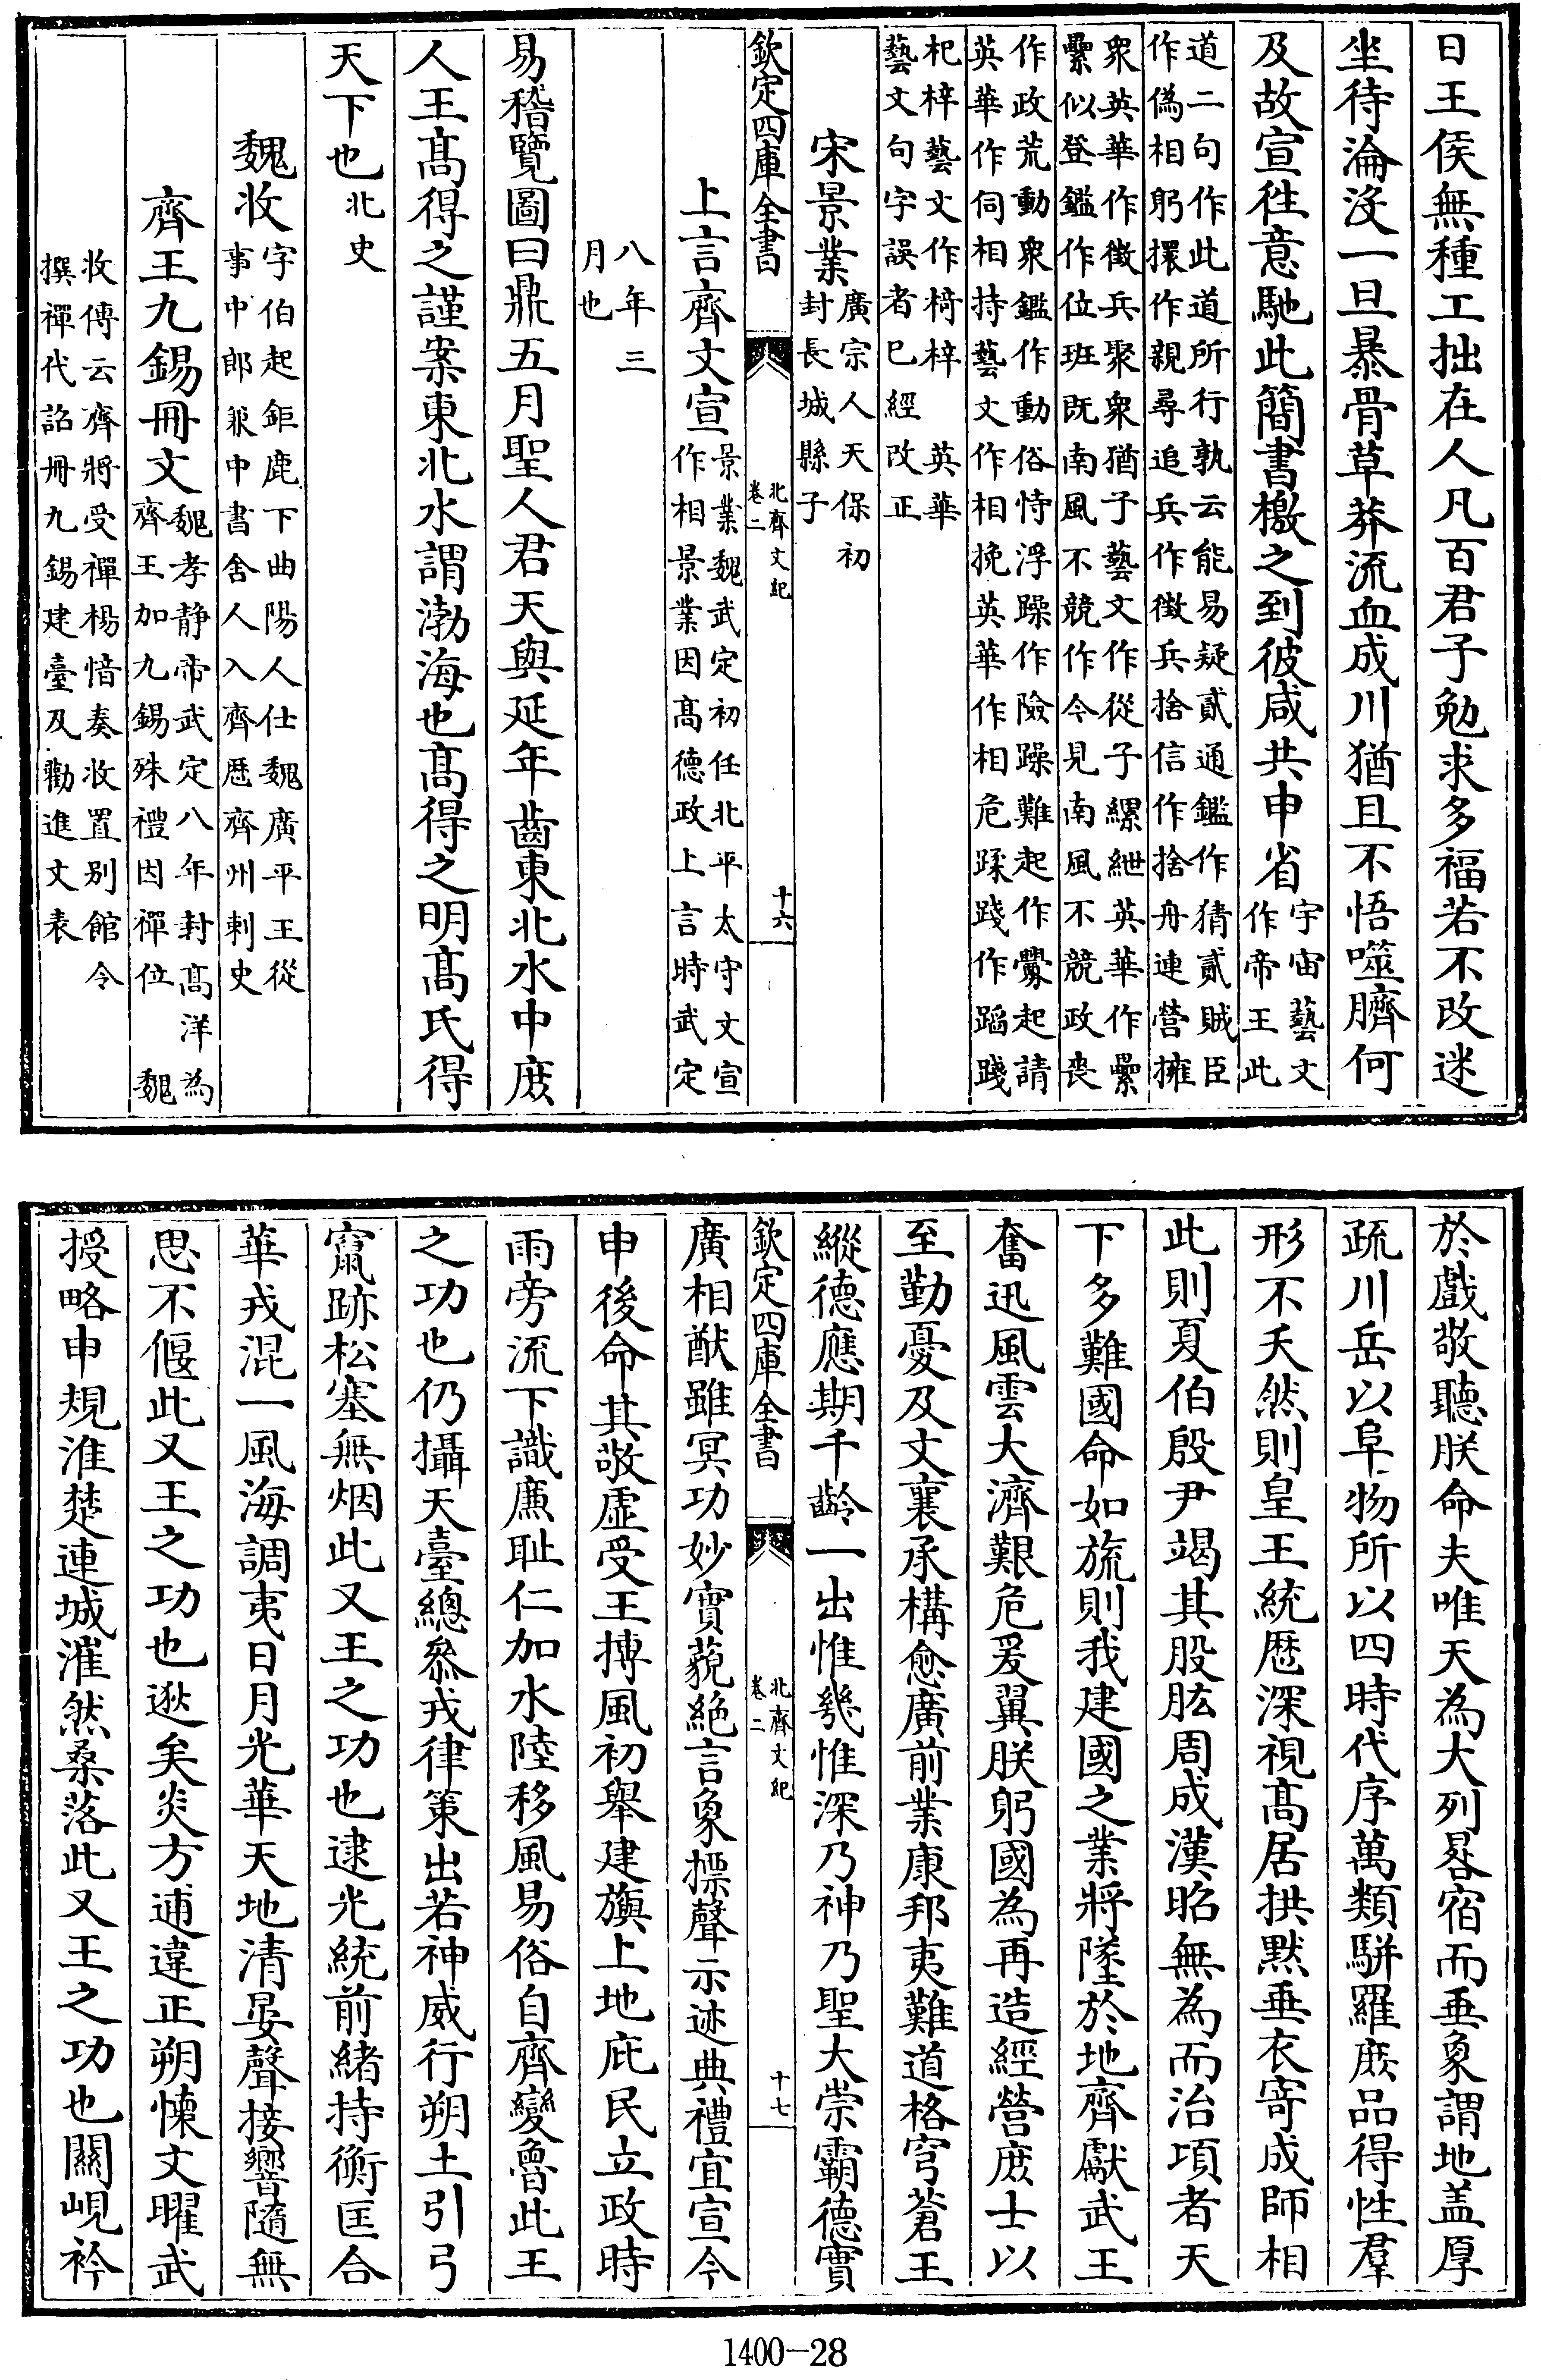 日王侯無種工拙在人凡百君子勉求多福若不改迷
坐待淪没一旦暴骨草莽流血成川猶且不悟噬臍何
及故宣徃意馳此簡書檄之到彼咸共申省宇宙藝文作帝王此
道二句作此道所行孰云能易疑貳通鑑作猜貳賊臣
作偽相躬擐作親尋追兵作徴兵捨信作捨舟連營擁
衆英華作徴兵聚衆猶子藝文作從子縲紲英華作纍
纍似登鑑作位班既南風不競作今見南風不競政喪
作政荒動衆鑑作動俗恃浮躁作險躁難起作釁起請
英華作伺相持藝文作相挽英華作相危蹂踐作蹈踐
杞梓藝文作椅梓 英華
藝文句字誤者已經改正
宋景業廣宗人天保初封長城縣子
欽定四庫全書 北齊文紀卷二 十六
上言齊文宣景業魏武定初任北平太守文宣作相景業因髙德政上言時武定
八年三月也
易稽覽圖曰鼎五月聖人君天與延年齒東北水中庻
人王髙得之謹案東北水謂渤海也髙得之明髙氏得
天下也北史
魏收字伯起鉅鹿下曲陽人仕魏廣平王從事中郎兼中書舍人入齊歴齊州刺史
齊王九錫冊文魏孝静帝武定八年封髙洋為齊王加九錫殊禮因禪位 魏
收傳云齊將受禪楊愔奏收置别館令
撰禪代詔冊九錫建臺及勸進文表
於戲敬聽朕命夫唯天為大列晷宿而垂象謂地盖厚
疏川岳以阜物所以四時代序萬類駢羅庻品得性羣
形不夭然則皇王統歴深視髙居拱默垂衣寄成師相
此則夏伯殷尹竭其股肱周成漢昭無為而治項者天
下多難國命如旒則我建國之業將墜於地齊獻武王
奮迅風雲大濟艱危爰翼朕躬國為再造經營庻士以
至勤憂及文襄承構愈廣前業康邦夷難道格穹蒼王
縱德應期千齡一出惟幾惟深乃神乃聖大崇霸德實
欽定四庫全書 北齊文紀卷二 十七
廣相猷雖冥功妙實藐絶言象摽聲示迹典禮宜宣今
申後命其敬虚受王摶風初舉建旟上地庇民立政時
雨旁流下識亷耻仁加水陸移風易俗自齊變魯此王
之功也仍攝天臺總叅戎律策出若神威行朔土引弓
竄跡松塞無烟此又王之功也逮光統前緒持衡匡合
華戎混一風海調夷日月光華天地清晏聲接響隨無
思不偃此又王之功也逖矣炎方逋違正朔懐文曜武
授略申規淮楚連城漼然桑落此又王之功也關峴衿
1400-28